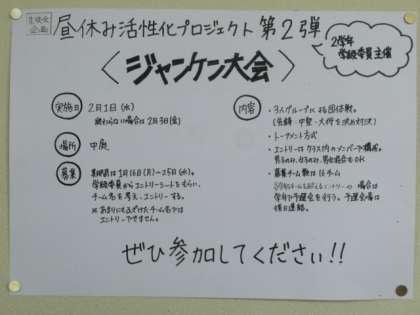 昼休み活性化プロジェクト 第2弾
〈ジャンケン大会〉
2学年
学級委員主催
実施日 2月1日(水)
終わらない場合は2月3日(金)
場所 中庭
募集 期間は1月16日(月)〜25日(水)。
学級委員からエントリーシートをもらい、
チーム名を考え、エントリーする。
※あまりにもふざけたチーム名では
エントリーできません。
内容 ・3人グループによる団体戦。
(先鋒・中堅・大将を決め対決)
・トーナメント方式
・エントリーはクラス内のメンバーで構成。
男子のみ、女子のみ、男女混合もOK
・募集チーム数は16チーム
場合は
学年で予選会を行う。予選会場は
後に連絡。
ぜひ参加してください!!